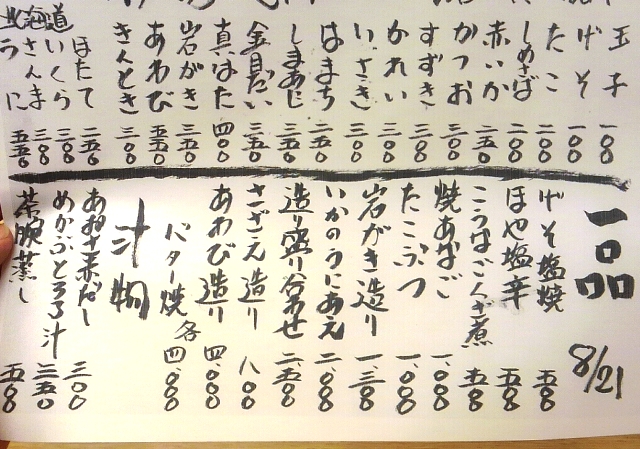 玉子 一〇〇
げそ 一〇〇
たこ 二〇〇
しめさば 二〇〇
赤いか 二五〇
かつお 三〇〇
すずき 三〇〇
かれい 三〇〇
いさき 三〇〇
はまち 二五〇
しまあじ 三五〇
金目だい 三五〇
真はた 四〇〇
岩がき 三五〇
あわび 五五〇
きんとき 三〇〇
ほたて 二五〇
いくら 三〇〇
さんま 三〇〇
北海道
うに 五五〇
一品
8/21
げそ塩焼 五〇〇
ほや塩辛 五〇〇
こうなごくぎ煮 五〇〇
焼あなご 一、〇〇〇
たこぶつ 一、〇〇〇
岩がき造り 一、三〇〇
いかのうにあえ 二、〇〇〇
造り盛り合わせ 二、五〇〇
さざえ造り 八〇〇
あわび造り 四、〇〇〇
バター焼 各四、〇〇〇
汁物
あおさ赤だし 三〇〇
めかぶとろろ汁 三五〇
茶腕蒸し 五〇〇